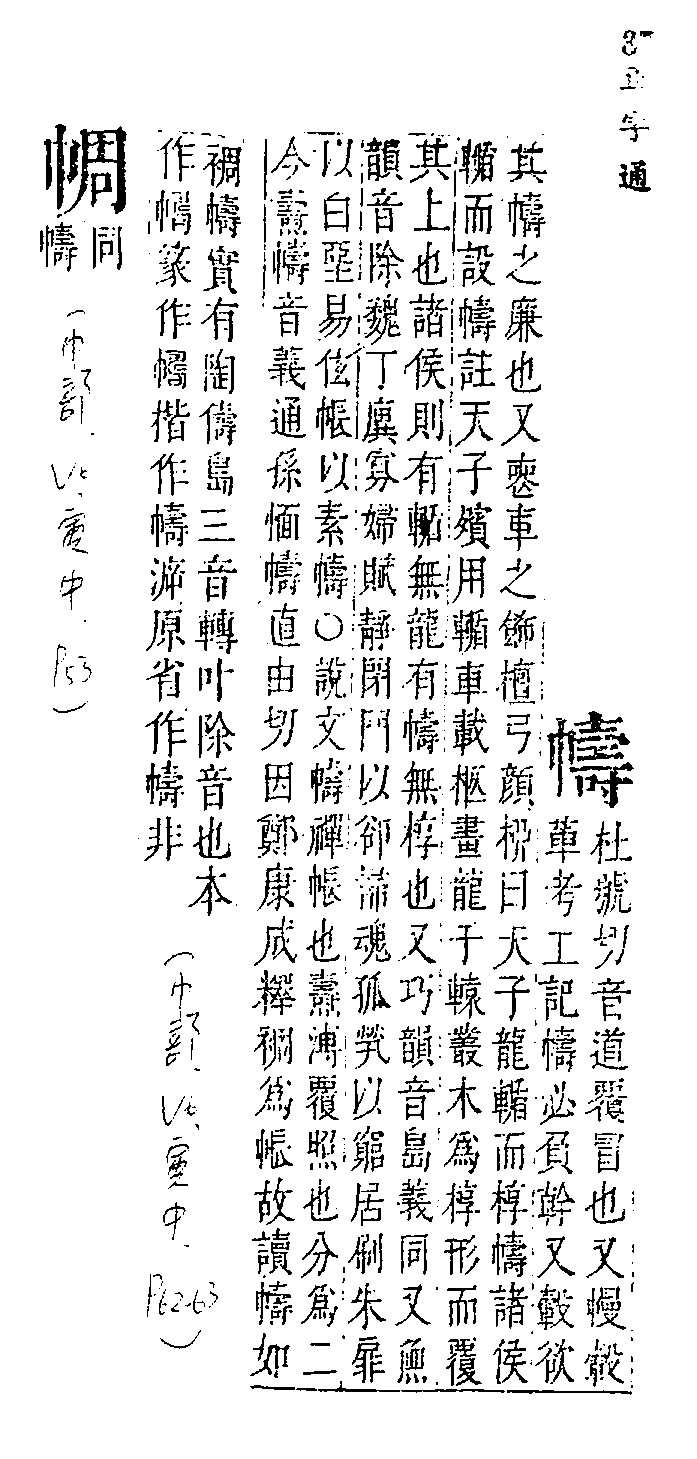 正字通
幬
杜號切音道覆冒也又幔轂
革考工記幬必負幹又轂欲
其幬之廉也又喪車之飾檀弓顔柳曰天子龍輴而椁幬諸侯
輴而設幬註天子殯用輴車載柩畫龍于轅叢木爲椁形而覆
其上也諸侯則有輴無龍有幬無椁也又巧韻音島義同又魚
韻音除魏丁廙寡婦賦靜閉門以卻掃魂孤煢以窮居刷朱扉
以白堊易玄帳以素幬〇說文幬禪帳也燾溥覆照也分爲二
今燾幬音義通孫愐幬直由切因鄭康成釋裯爲帳故讀幬如
裯幬實有陶儔島三音轉叶除音也本
作𢅥篆作𢅥楷作幬㴑原省作幬非
(巾部.VS,寅中.P62-63)
㡡
同
幬
(巾部.VS,寅中.P53)